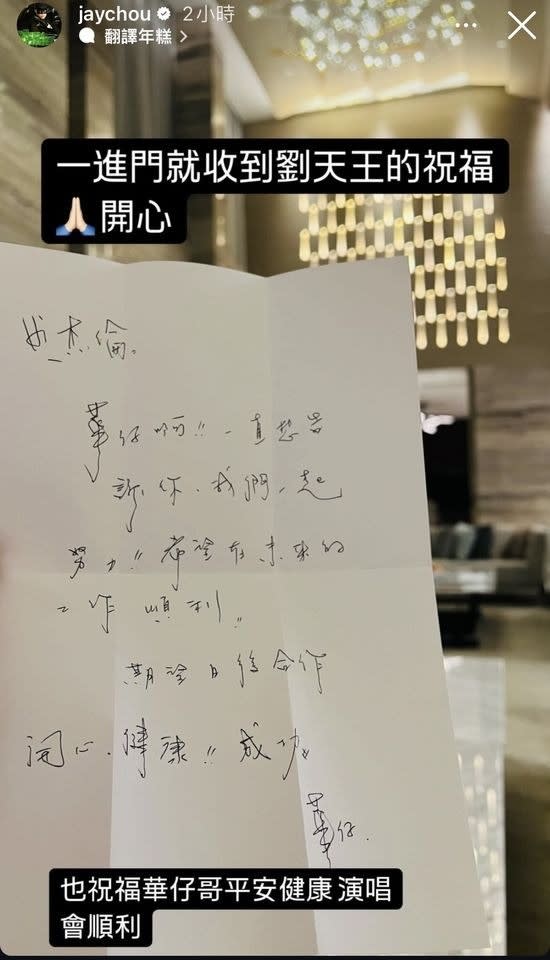 jaychou 2小時
翻譯年糕 >
一進門就收到劉天王的祝福
🙏🏻開心
杰倫。
華仔啊!! 一直想告
訴你、我們一起
努力!! 希望在未來的
工作順利!!
期望日後合作
開心、健康!! 成功!!
華仔.
也祝福華仔哥平安健康 演唱
會順利